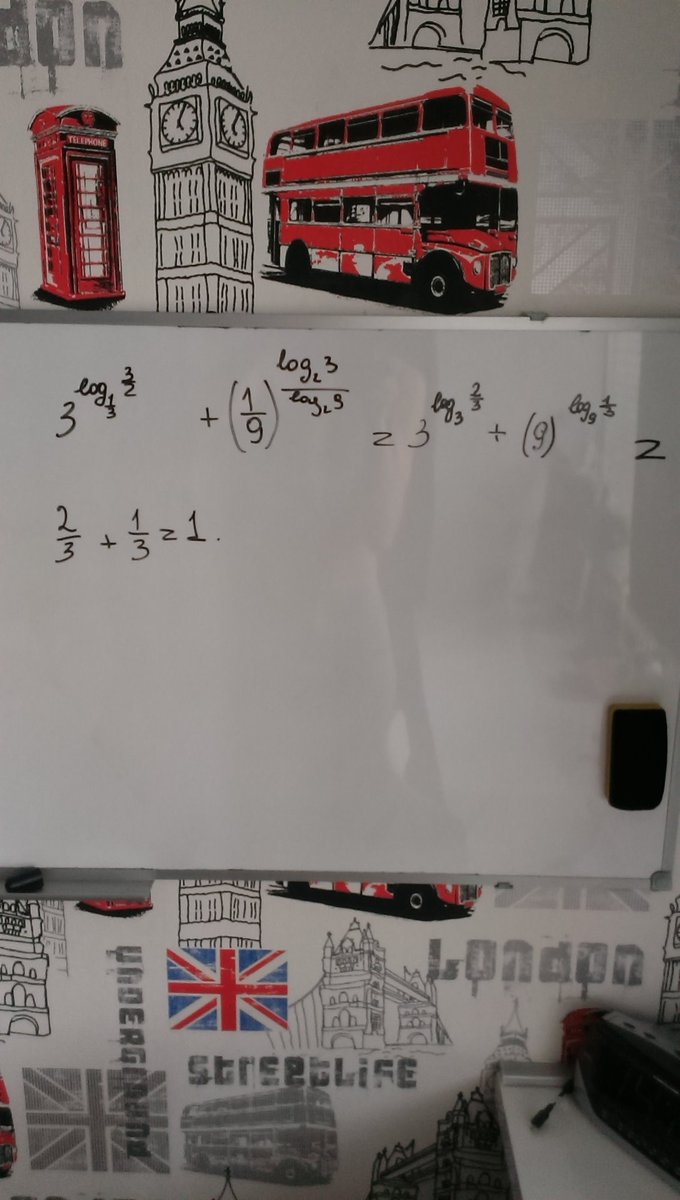 TELEPHONE
3^{log_{\frac{1}{3}} \frac{3}{2}} + (\frac{1}{9})^{\frac{log_2 3}{log_2 9}} = 3^{log_3 \frac{2}{3}} + (9)^{log_9 \frac{1}{3}} =
\frac{2}{3} + \frac{1}{3} = 1.
LONDON
UNDERGROUND
STREETLIFE